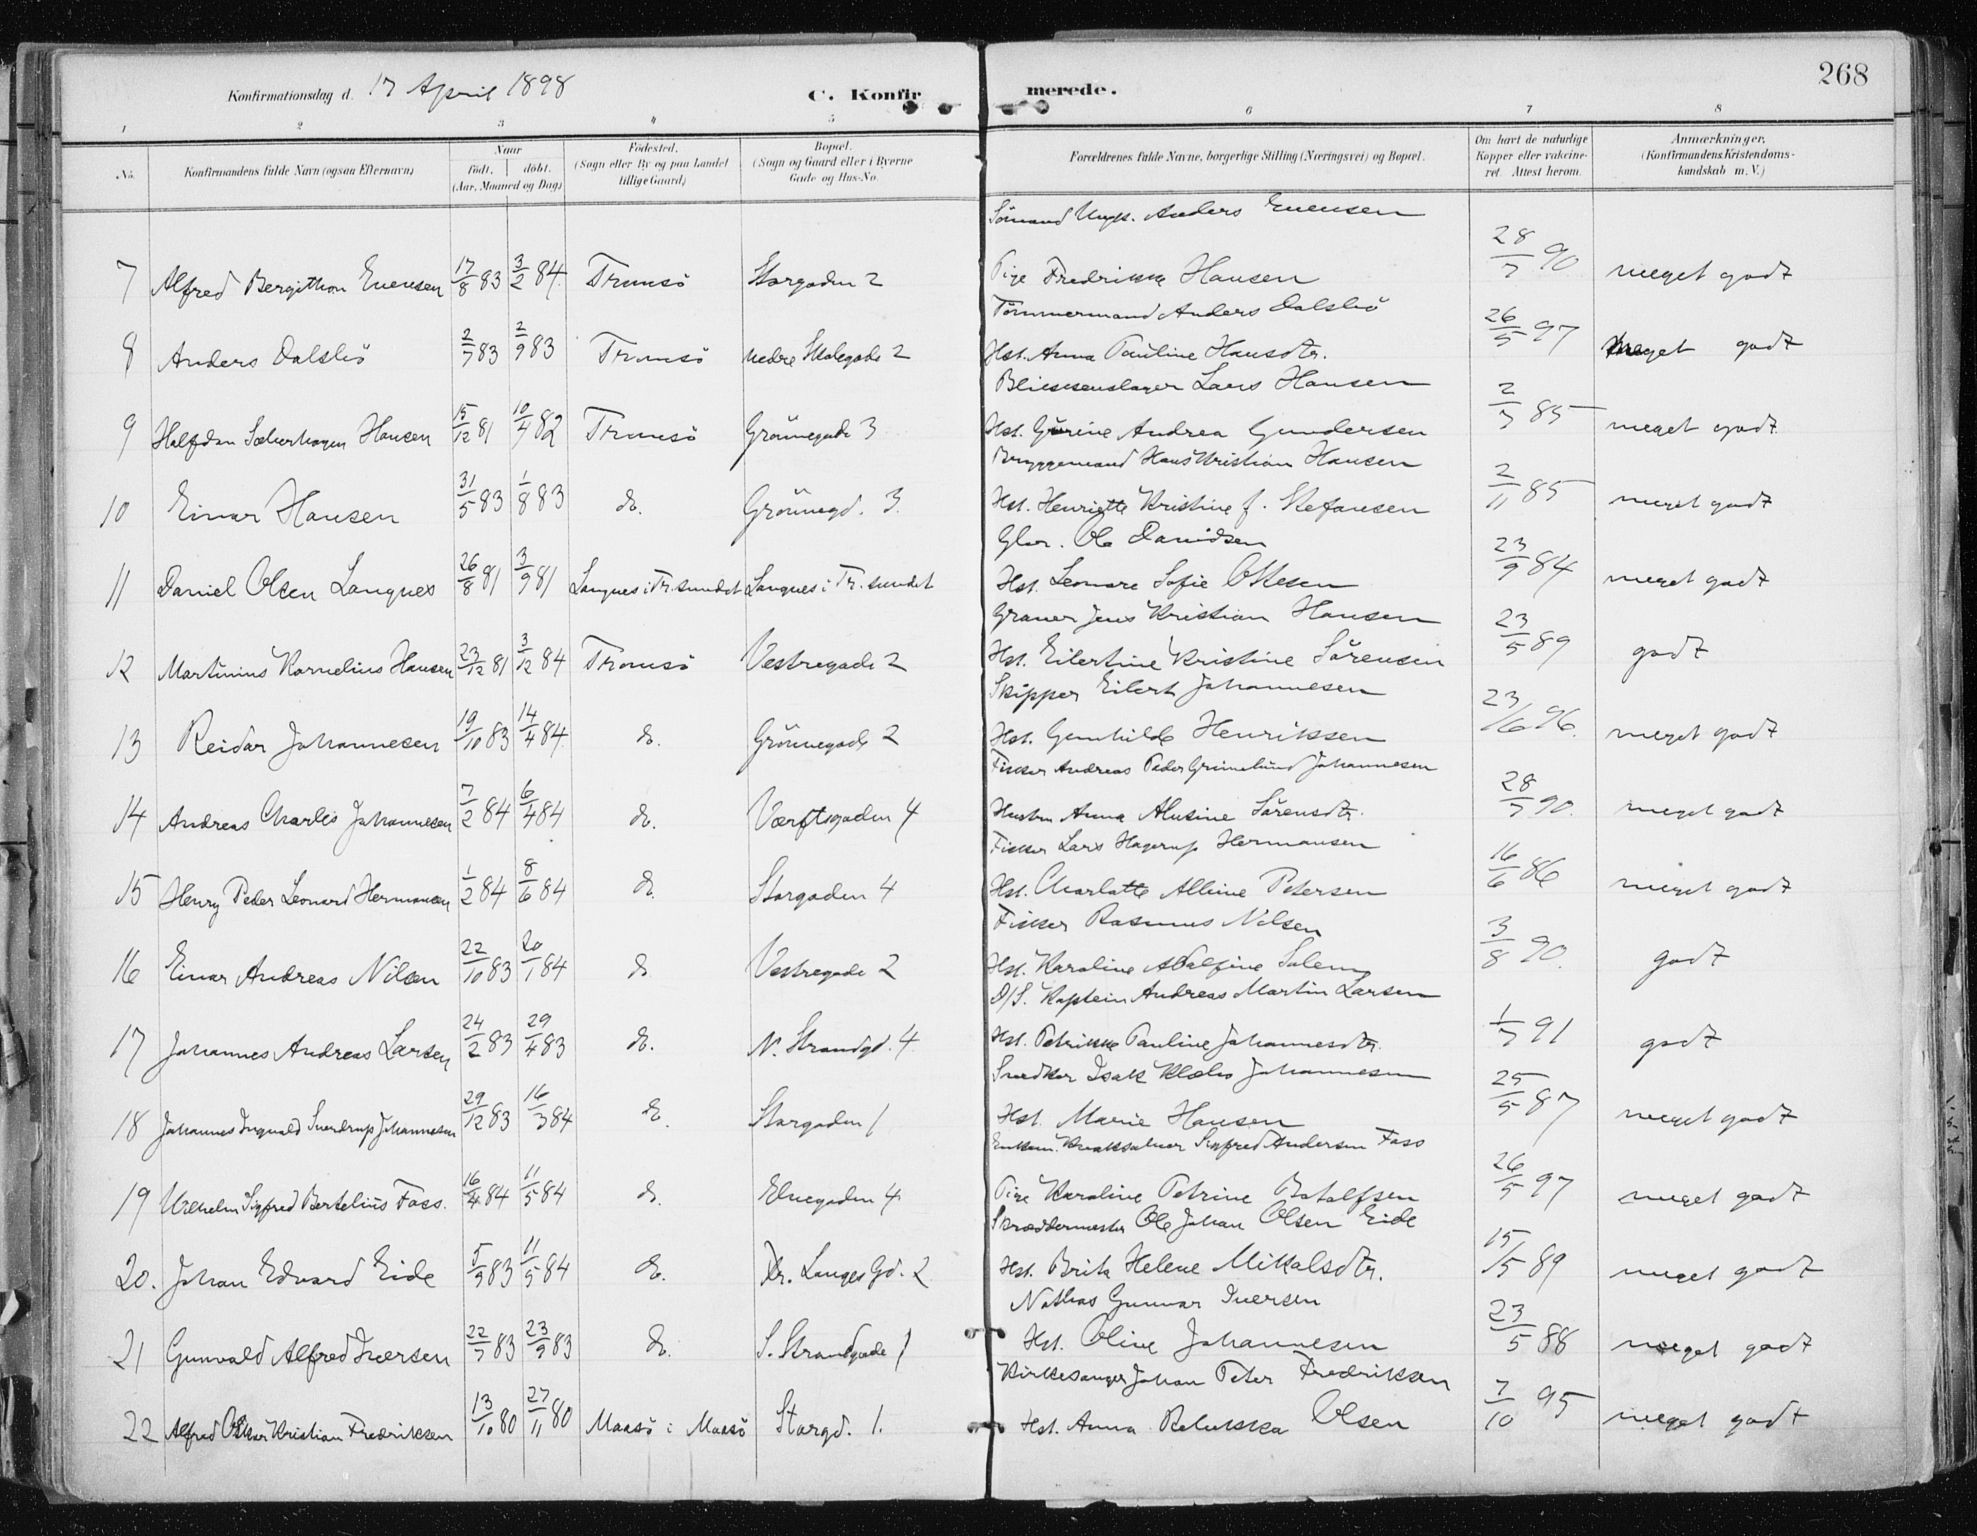 268
Konfirmationsdag d. 17 April 1898
C. Konfirmerede.
1 2 3 4 5 6 7 8
No. Konfirmandens fulde Navn (ogsaa Efternavn) Naar födt. döbt. (Aar, Maaned og Dag) Födested. (Sogn eller By og paa Landet tillige Gaard) Bopæl. (Sogn og Gaard eller i Byerne Gade og Hus-No. Forældrenes fulde Navne, borgerlige Stilling (Næringsvei) og Bopæl. Om havt de naturlige Kopper eller vakcineret. Attest herom. Anmærkninger. (Konfirmandens Kristendomskundskab m. V.)
Sömand Anders Evensen
7 Alfred Bergithon Evensen 17/8 83 3/2 84 Tromsö Storgaden 2 Pige Fredrikke Hansen 28/7 90 meget godt
Tömmermand Anders Dalslsö
8 Anders Dalslsö 2/7 83 2/9 83 Tromsö nedre Skolegade 2 Hst. Anna Pauline Hansdtr. 26/5 97 meget godt
Blikkenslager Lars Hansen
9 Halfdan Hansen 15/12 81 10/4 82 Tromsö Grönnegade 3 Hst. Gurine Andrea Gundersen 2/7 85 meget godt
Bryggemand Hans Kristian Hansen
10 Einar Hansen 31/5 83 1/8 83 do. Grönnegd. 3. Hst. Henriette Kristine f. Stefansen 2/11 85 meget godt
Ole Danidsen
11 Daniel Olsen Langnes 26/8 81 3/9 81 Langnes i Tr. sundet Langnes i Tr. sundet Hst. Leonore Sofie Ottesen 23/9 84 meget godt
Graver Jens Kristian Hansen
12 Martinius Kornelius Hansen 23/12 81 3/12 84 Tromsö Vestregade 2 Hst. Eilertine Kristine Sörensen 23/5 89 godt
Skipper Eilert Johannesen
13 Reidar Johannesen 19/10 83 14/4 84 do. Grönnegade 2 Hst. Gunhilde Henriksen 23/6 96. meget godt
Fisker Andreas Peder Grimelund Johannesen
14 Andreas Charles Johannesen 7/2 84 6/4 84 do. Værftsgaden 4 Hustru Anna Alusine Sörensdtr. 28/7 90. meget godt
Fisker Lars Hagerup Hermansen
15 Henry Peder Leonard Hermansen 1/2 84 8/6 84 do. Storgaden 4 Hst. Charlotte Alline Petersen 16/6 86 meget godt
Fisker Rasmus Nilsen
16 Einar Andreas Nilsen 22/10 83 20/1 84 do. Vestregade 2 Hst. Karoline Adalfine 3/8 90. godt
D/S. Kaptein Andreas Martin Larsen
17 Johannes Andreas Larsen 24/2 83 29/4 83 do. N. Strandgd. 4 Hst. Petrikke Pauline Johannesdtr. 1/7 91 godt
Snedker Isak Klæbo Johannesen
18 Johannes Ingvald Sverdrup Johannesen 29/12 83 16/3 84 do. Storgaden 1 Hst. Marie Hansen 25/5 87 meget godt
Enkem. Kvaksalver Sigfred Andersen Foss
19 Vilhelm Sigfred Bertelius Foss. 16/4 84 11/5 84 do. Elvegaden 4 Pige Karoline Petrine Botolfsen 26/5 97 meget godt
Skræddermester Ole Johan Olsen Eide
20. Johan Edvard Eide 5/9 83 11/5 84 do. Dr. Langes Gd. 2 Hst. Brita Helene Mikalsdtr. 15/5 89 meget godt
Nathas Gunnar Iversen
21 Gunvald Alfred Iversen 22/7 83 23/9 83 do. S. Strandgade 1 Hst. Oline Johannesen 23/5 88 meget godt
Kirkesanger Johan Peter Fredriksen
22 Alfred Oskar Kristian Fredriksen 13/10 80 27/11 80 Maasö i Maasö Storgd. 1. Hst. Anna Olsen 7/10 95 meget godt